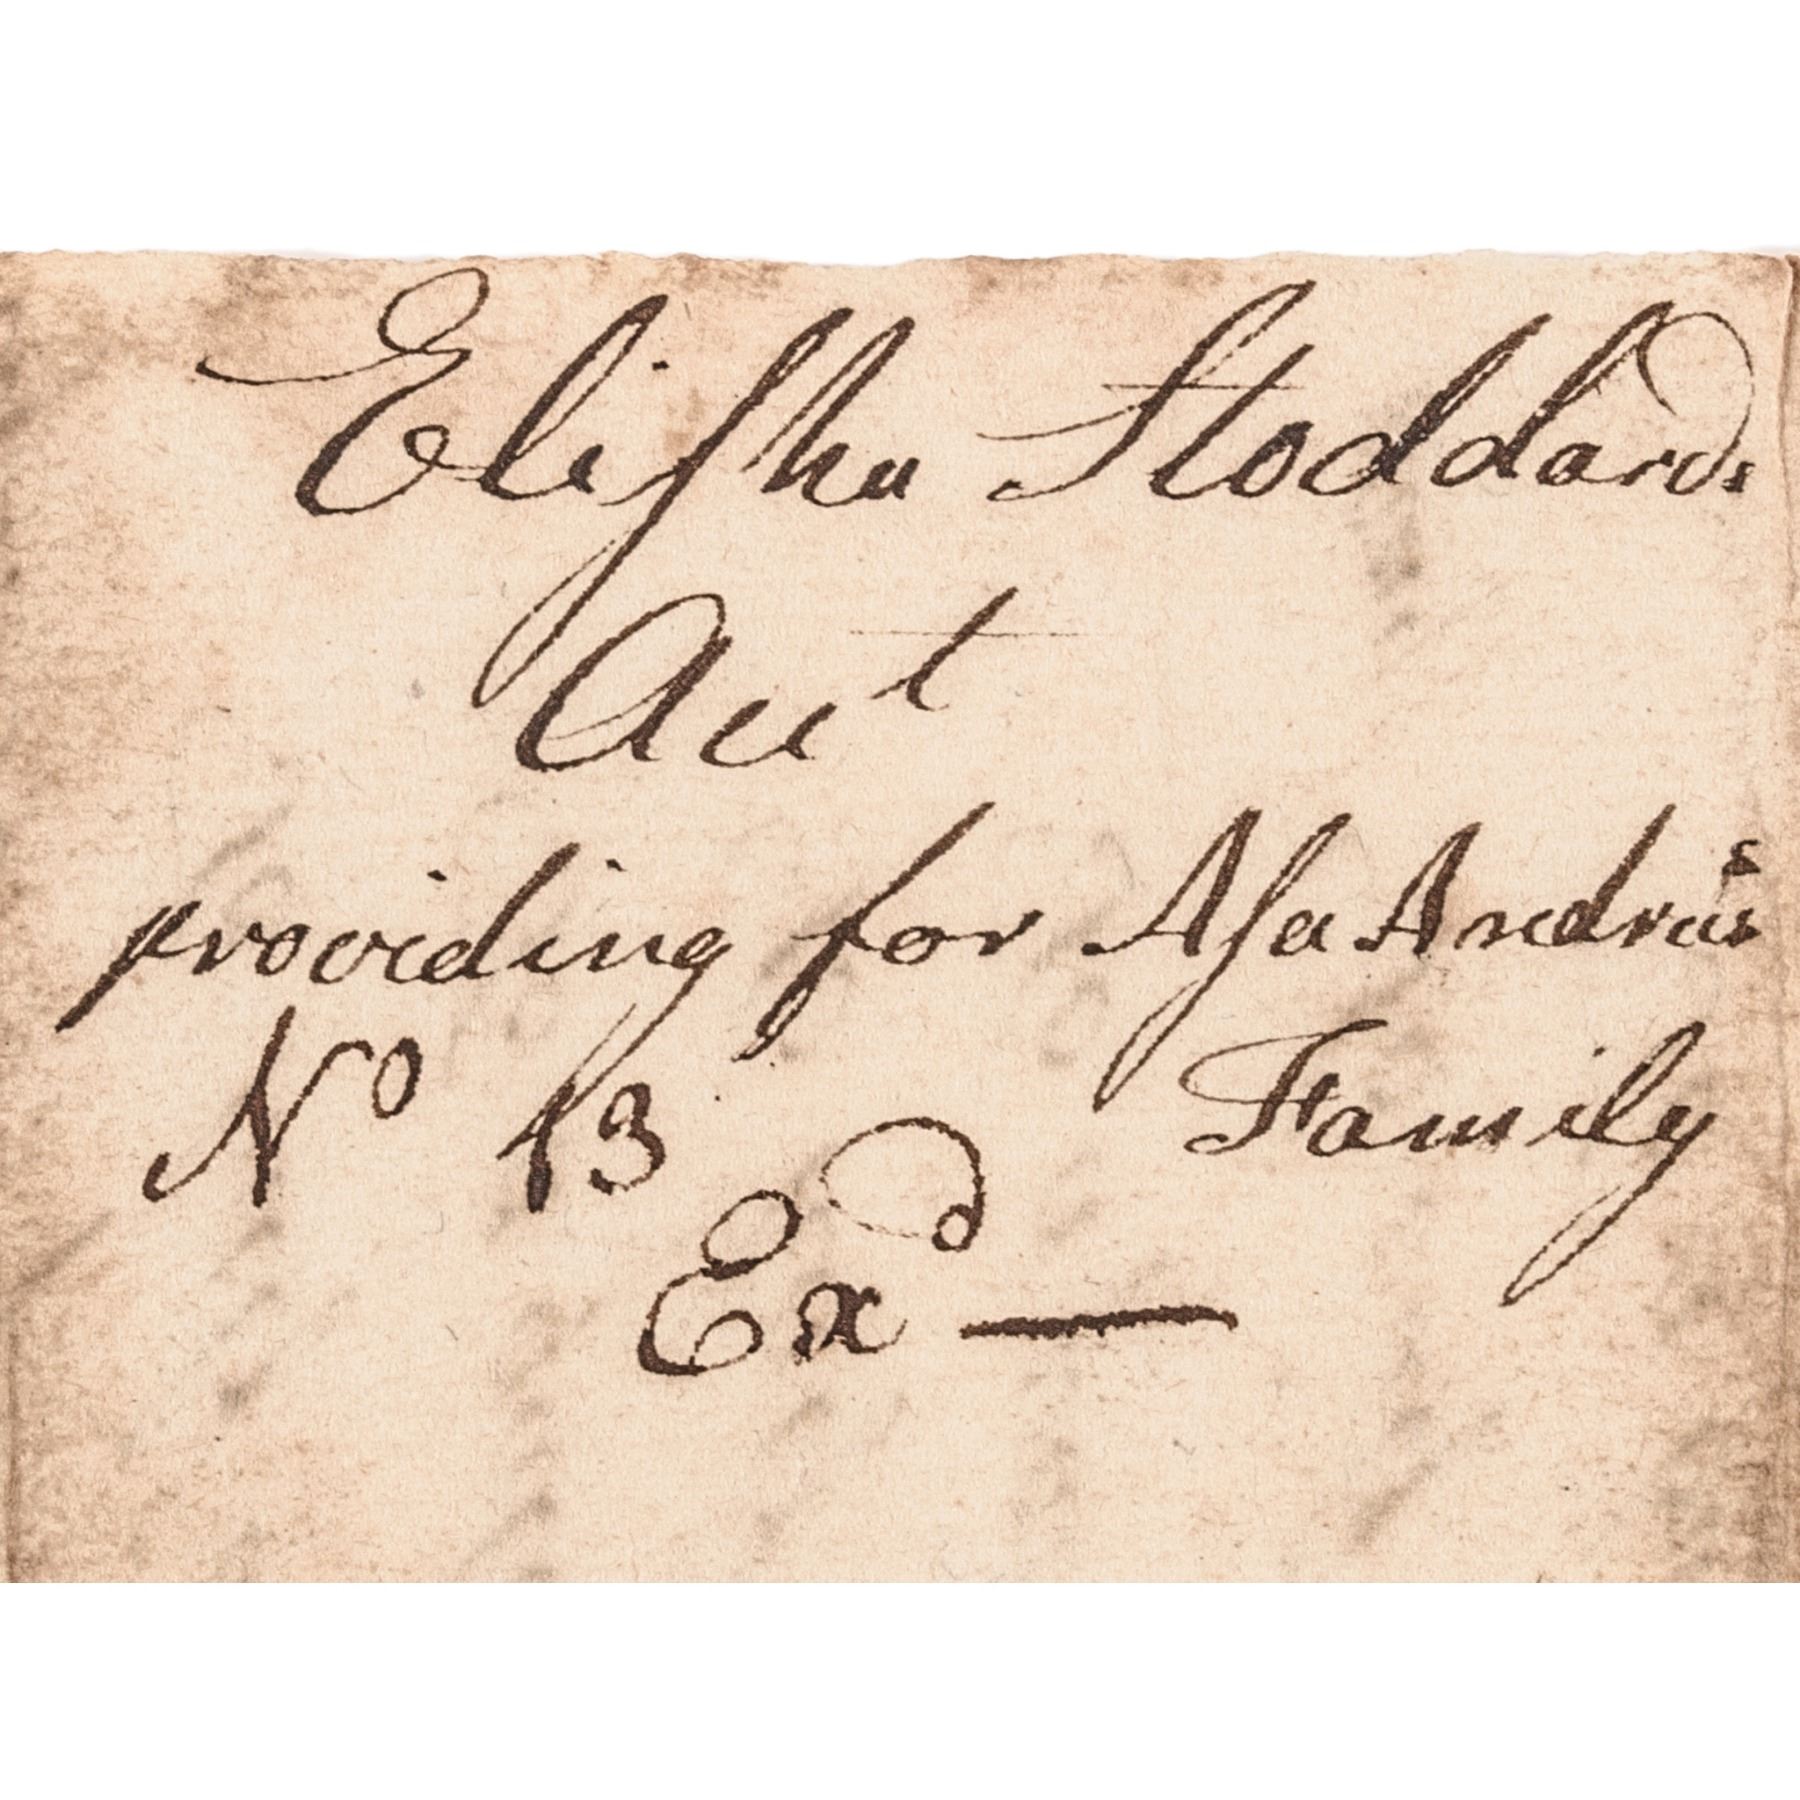 Elisha Stoddards
Acct
providing for Asa Andrus's
Family
No 13
Exd —